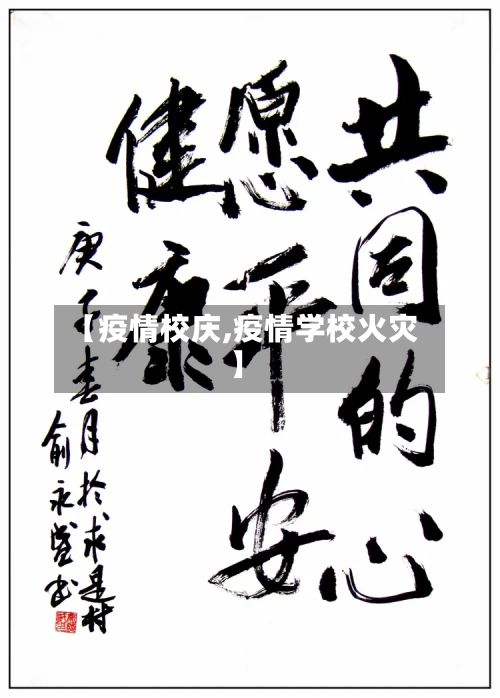 共同的心
愿平安
健康
庚子春月於求是村
俞永盛书
【疫情校庆,疫情学校火灾
】